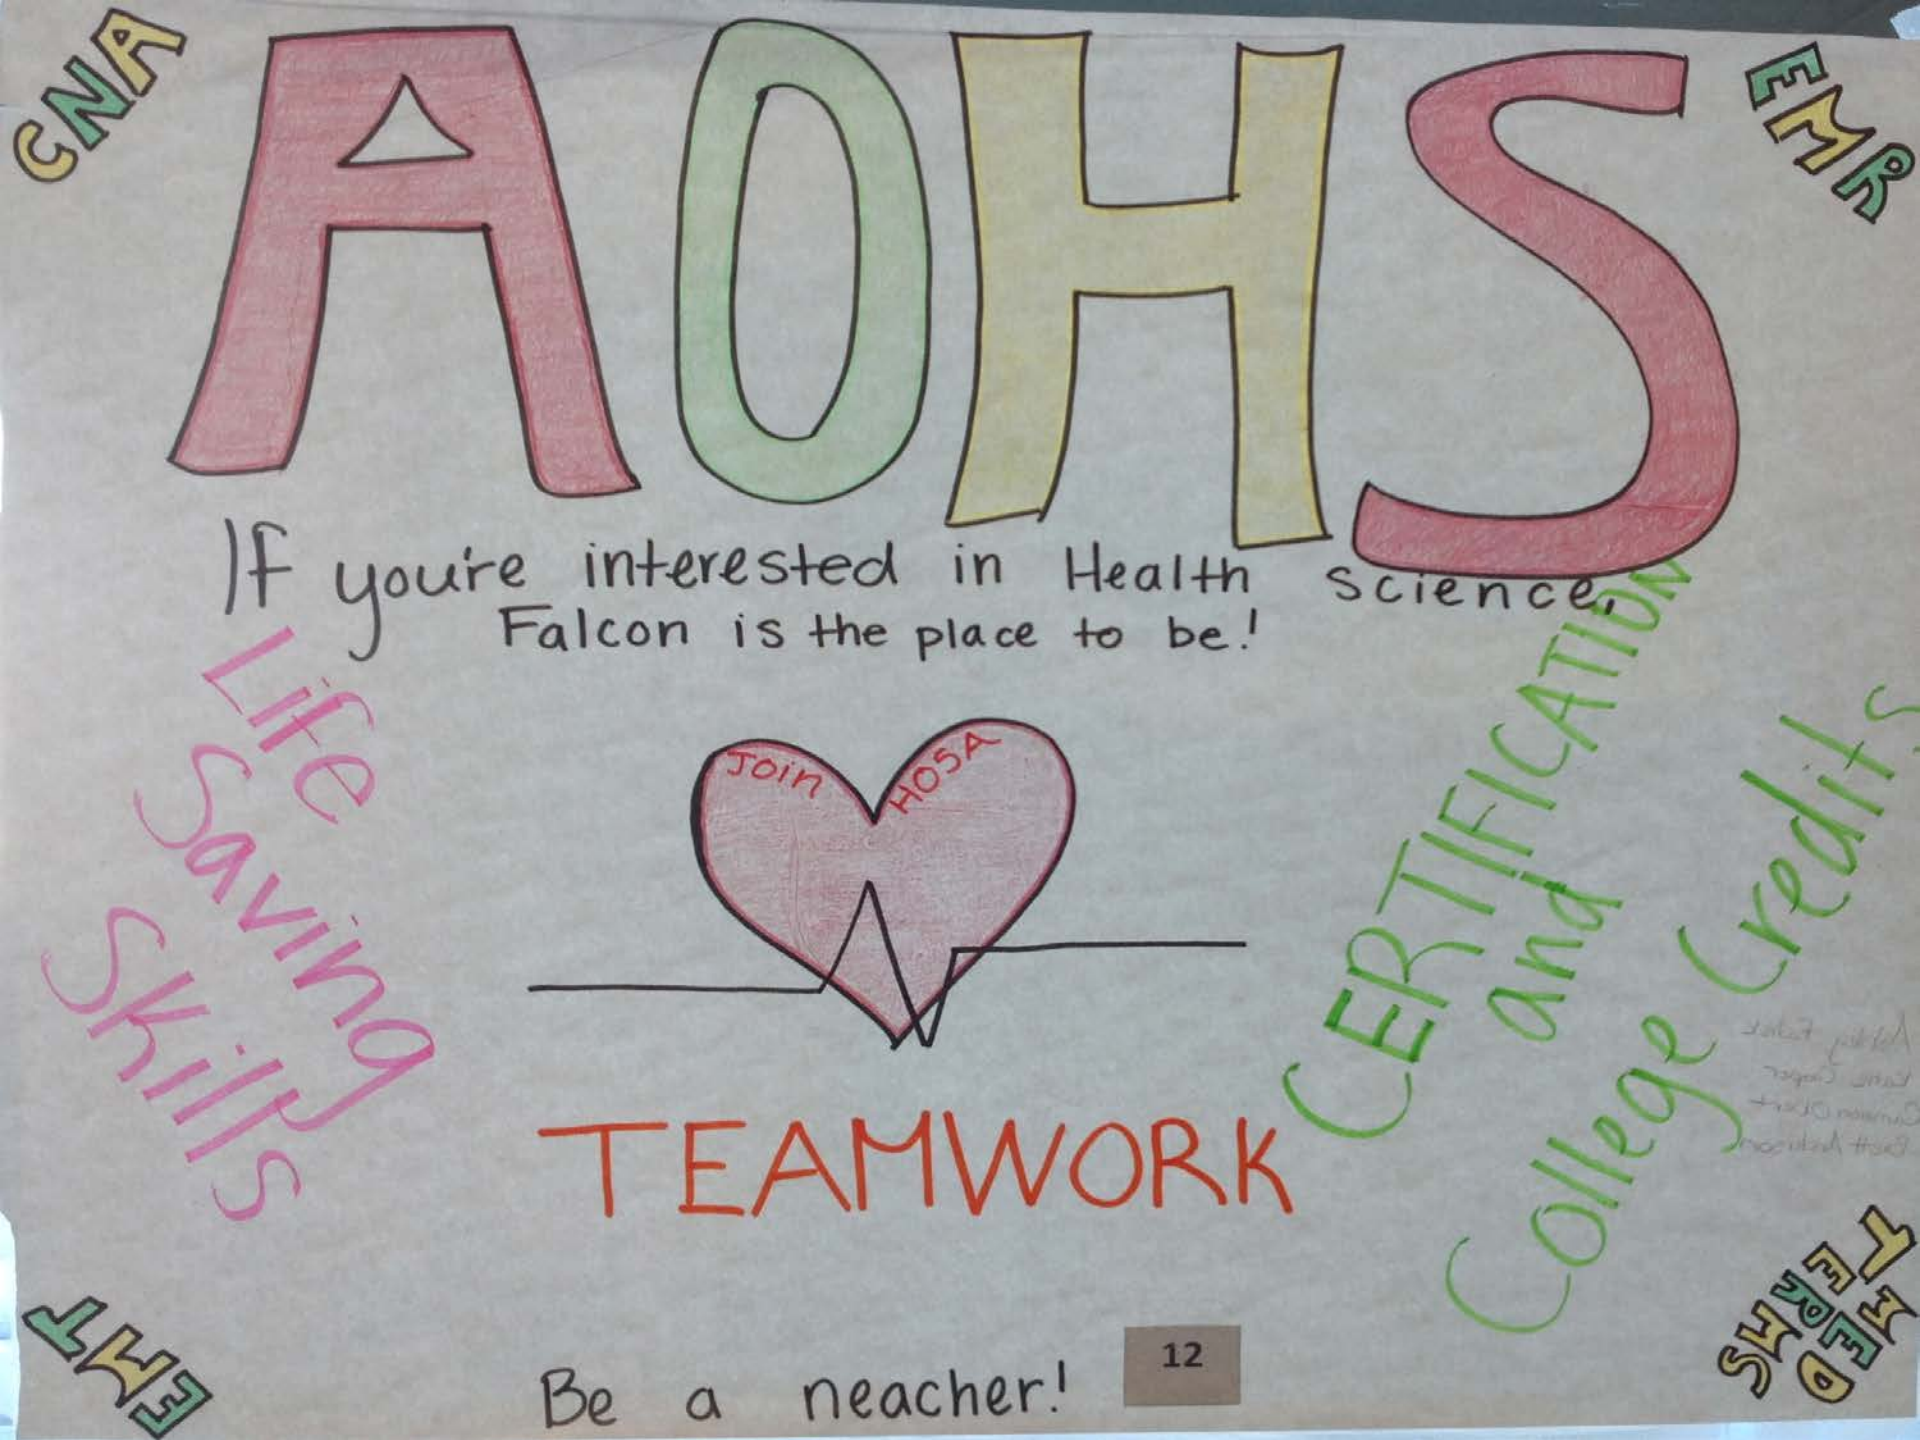 CNA
AOHS
EMR
If you're interested in Health Science,
Falcon is the place to be!
Life
Saving
Skills
Join HOSA
CERTIFICATION
and
College Credits
TEAMWORK
EMT
Be a neacher!
12
MED
TERMS